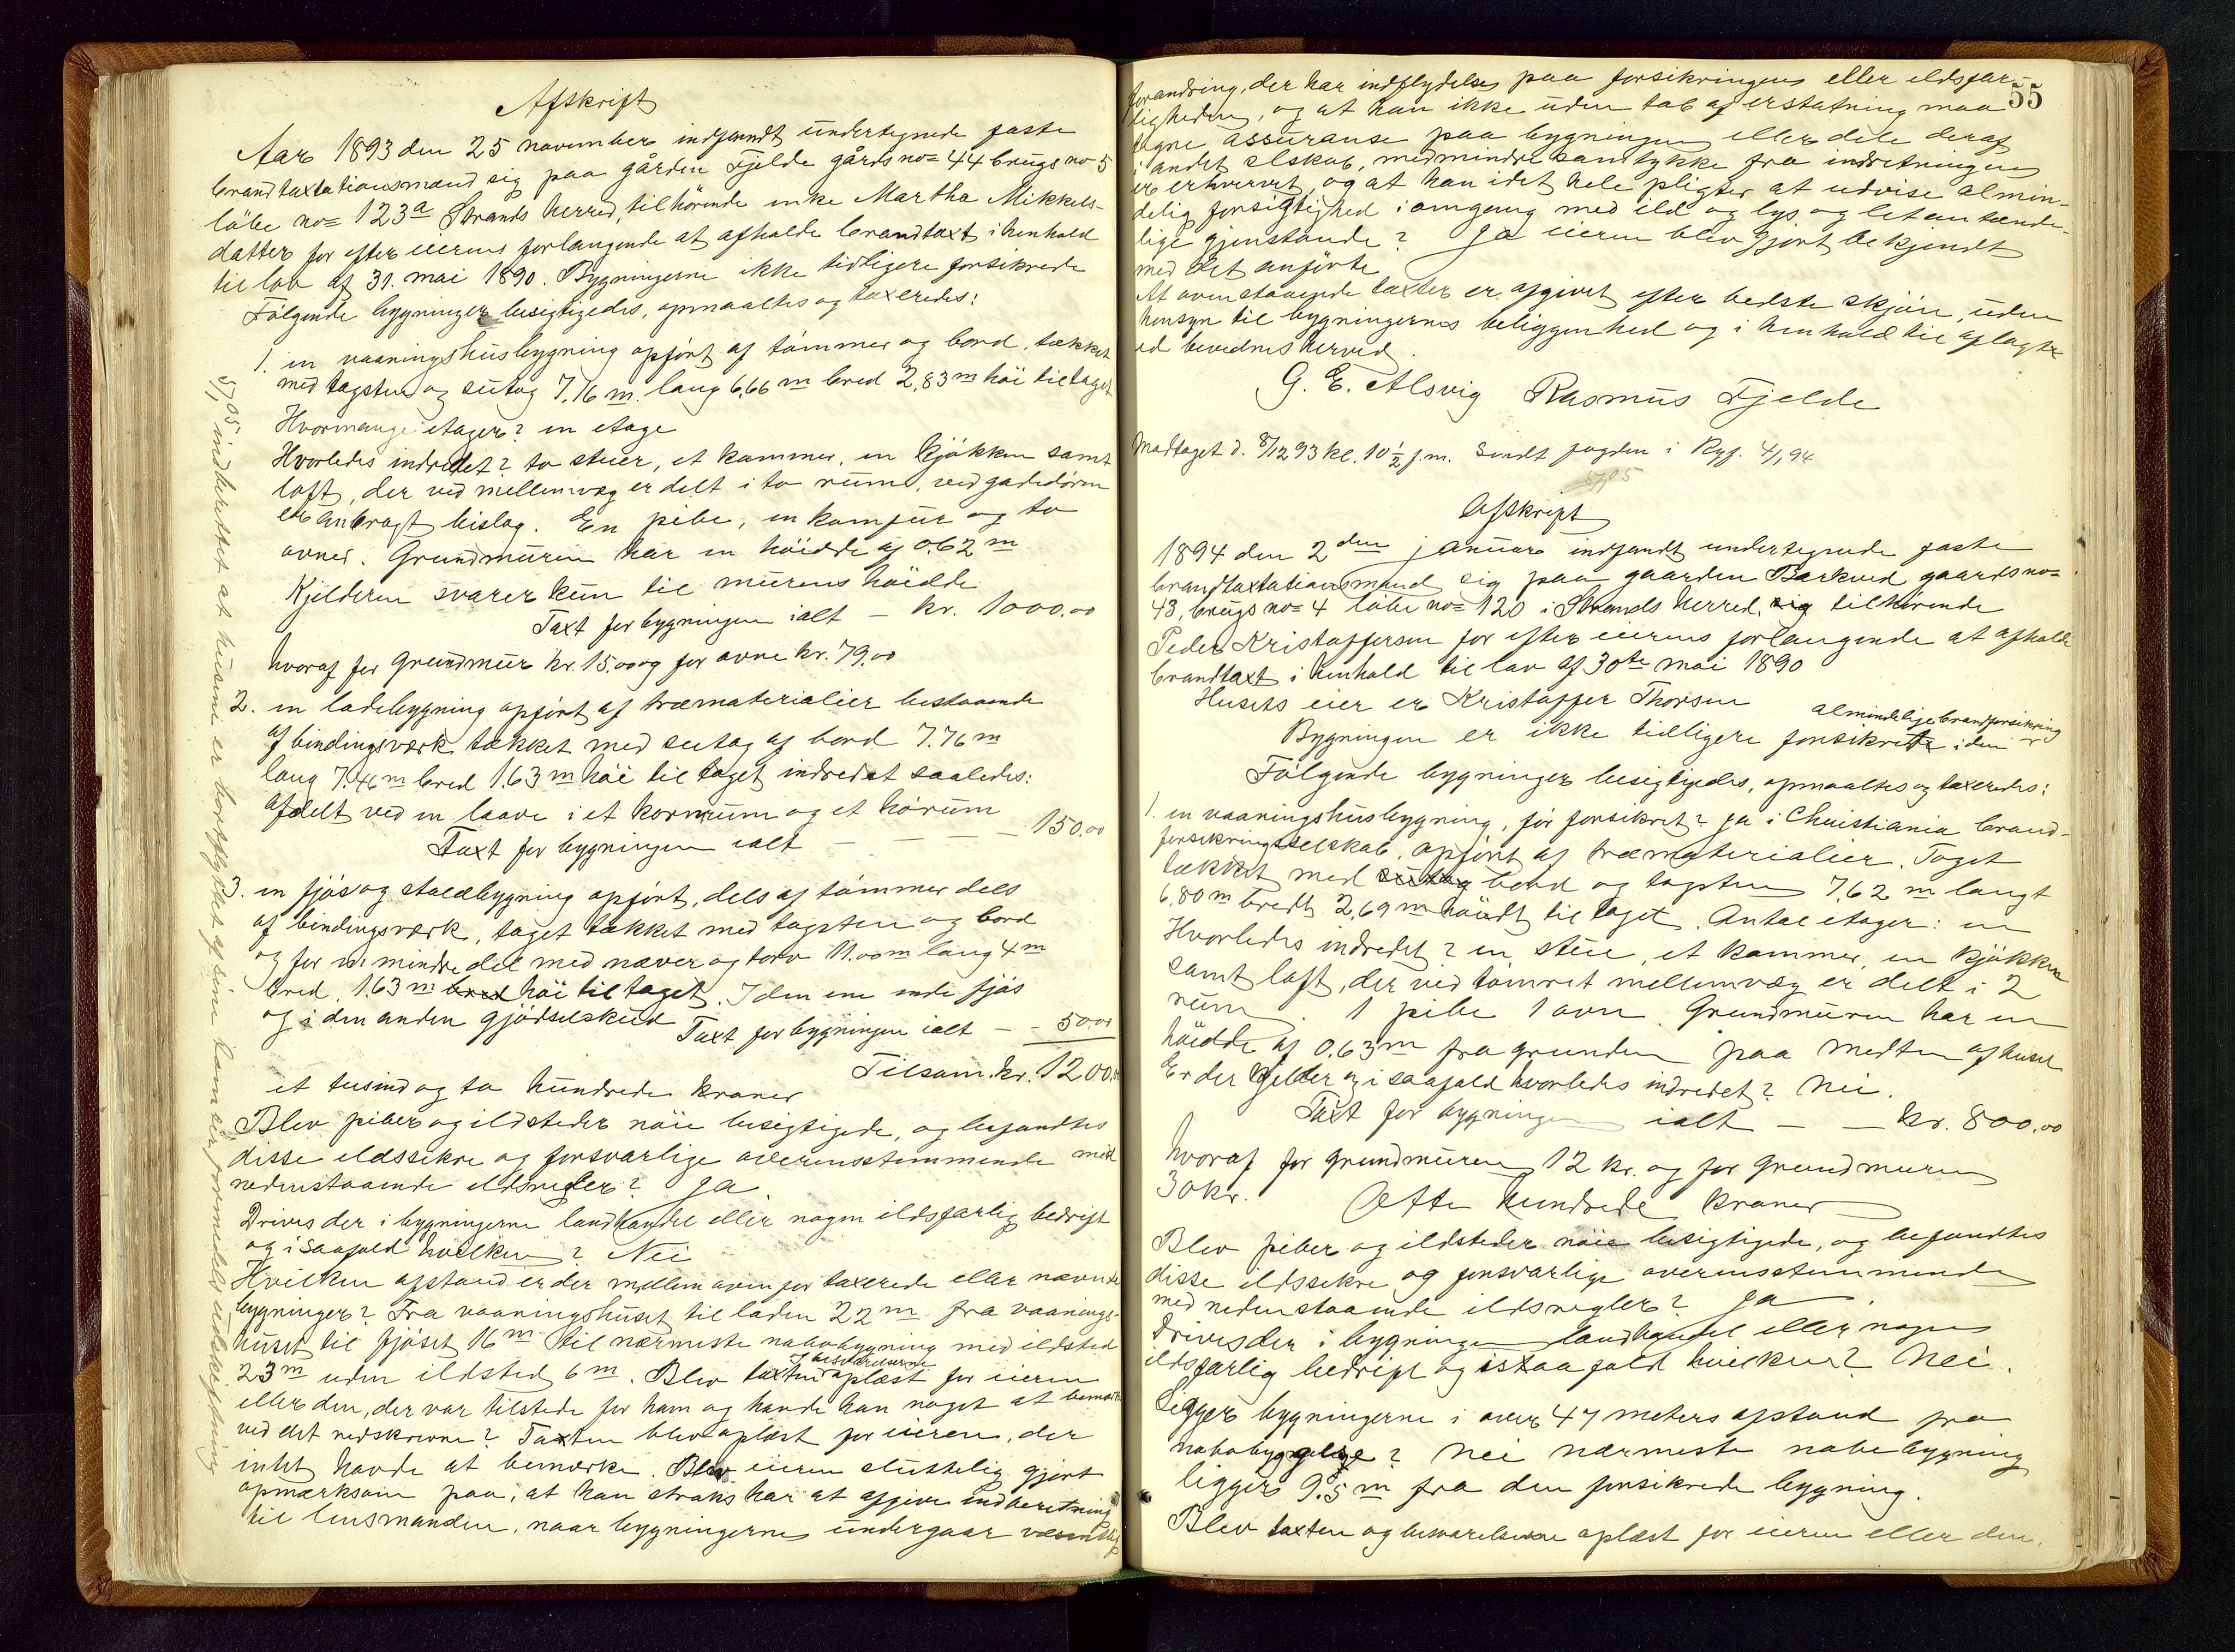 Afskrift
Aar 1893 den 25 november indfandt undertegnede faste
brandtaxtationsmænd sig paa gården Fjelde gårdsno= 44 brugs no 5
löbe no= 123a Strands herred, tilhörende enke Martha Mikkels-
datter for efter eierens forlangende at afholde brandtaxt i henhold
til lov af 31. mai 1890. Bygningerne ikke tidligere forsikrede
Fölgende bygninger besigtigedes, opmaaltes og taxeredes:
1. en vaaningshusbygning opfört af tömmer og bord, tækket
med tagsten og sutag 7.16 m. lang 6,66 m bred 2,83 m höi til taget
Hvormange etager? en etage
Hvorledes indredet? to stuer, et kammer, en kjökken samt
loft, der ved mellemvæg er delt i to rum, ved gadedören
er anbragt bislag. En pibe, en komfur og to
ovner. Grundmuren har en höidde af 0.62 m
Kjelderen svarer kun til murens höidde
Taxt for bygningen ialt — kr. 1000.00
hvoraf for grundmur kr. 15.00 og for ovne kr. 79.00
2. en ladebygning opfört af træmaterialier bestaaende
af bindingsværk tækket med sutag af bord 7.76 m
lang 7.46 m bred 1.63 m höi til taget indredet saaledes:
afdelt ved en laave i et kornrum og et hörum
Taxt for bygningen ialt — — — 150.00
3. en fjös og staldbygning opfört, dels af tömmer dels
af bindingsværk, taget tækket med tagsten og bord
og for en mindre del med næver og torv 11.00 m lang 4 m
bred, 1.63 m bred höi til taget. I den ene ende fjös
og i den anden gjödselskud
Taxt for bygningen ialt — - 50.00
Tilsam. kr. 1200.00
et tusind og to hundrede kroner
Blev piber og ildsteder nöie besigtigede, og befandtes
disse ildssikre og forsvarlige overensstemmende med
nedenstaaende ildsregler? Ja.
Drives der i bygningerne landhandel eller nogen ildsfarlig bedrift
og i saafald hvilken? Nei
Hvilken afstand er der mellem ovenfor taxerede eller nævnte
bygninger? Fra vaaningshuset til laden 22 m fra vaanings-
huset til fjöset 16 m til nærmeste nabobygning med ildsted
23 m uden ildsted 6 m. Blev taxten og besvarelserne oplæst for eieren
eller den, der var tilstede for ham og havde han noget at bemærke
ved det nedskrevne? Taxten blev oplæst for eieren, der
intet havde at bemærke. Blev eieren sluttelig gjort
opmærksom paa, at han straks har at afgive indberetning
til lensmanden, naar bygningerne undergaar væsentlig
5/7 05 indberettet at husene er bortflyttet
55
forandring, der har indflydelse paa forsikringen eller ildsfar-
ligheden, og at han ikke uden tab af erstatning maa
tegne assuranse paa bygningen eller dele deraf
i andet selskab, medmindre samtykke fra indretningen
er erhvervet, og at han idet hele pligter at udvise almin-
delig forsigtighed i omgang med ild og lys og letantænde-
lige gjenstande? Ja eieren blev gjort bekjendt
med det anförte
At ovenstaaende taxter er afgivet efter bedste skjön, uden
hensyn til bygningernes beliggenhed og i henhold til aflagte
ed bevidnes herved.
G. E. Alsvig Rasmus Fjelde
Modtaget d. 8/12 93 kl. 10 1/2 f.m. Sendt fogden i Ryf. 4/1 94
Afskrift
1894 den 2den januar indfandt undertegnede faste
brandtaxtationsmænd sig paa gaarden Barkved gaardsno=
43, brugs no= 4 löbe no= 120 i Strands herred, sig tilhörende
Peder Kristoffersen for efter eierens forlangende at afholde
brandtaxt i henhold til lov af 30te mai 1890
Husets eier er Kristoffer Thorsen
Bygningen er ikke tidligere forsikret i den almindelige brandforsikring
Fölgende bygninger besigtigedes, opmaaltes og taxeredes:
1. en vaaningshusbygning, för forsikret? ja i Christiania brand-
forsikringsselskab, opfört af træmaterialier. Taget
tækket med sutag bord og tagsten 7,62 m langt
6,80 m bredt 2,69 m höidt til taget. Antal etager: en
Hvorledes indredet? en stue, et kammer, en kjökken
samt loft, der ved tömret mellemvæg er delt i 2
rum. 1 pibe 1 ovn. Grundmuren har en
höidde af 0.63 m fra grunden paa midten af huset
Er der kjelder og i saafald hvorledes indredet? Nei.
Taxt for bygningen ialt — — kr. 800.00
hvoraf for grundmuren 12 kr. og for grundmuren
30 kr. Otte hundrede kroner
Blev piber og ildsteder nöie besigtigede, og befandtes
disse ildssikre og forsvarlige overensstemmende
med nedenstaaende ildsregler? Ja.
Drives der i bygningen landhandel eller nogen
ildsfarlig bedrift og i saa fald hvilken? Nei.
Ligger bygningerne i over 47 meters afstand fra
nabobygning? Nei nærmeste nabobygning
ligger 9.5 m fra den forsikrede bygning.
Blev taxten og besvarelserne oplæst for eieren eller den,